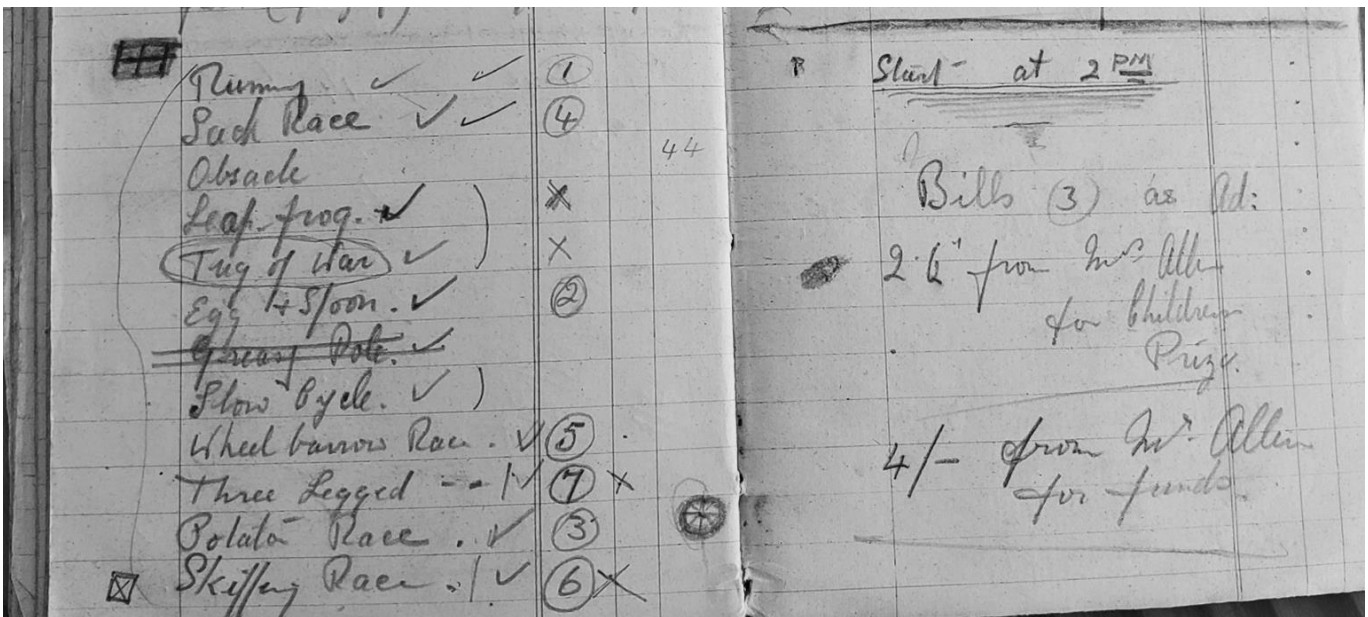 Running ✓ ✓ ①
Sack Race ✓ ✓ ④
44
Obsacle
Leap-frog. ✓ ) X
Tug of War ✓ ) X
Egg & Spoon. ✓ ②
Greasy Pole. ✓
Slow Cycle. ✓ )
Wheel barrow Race. ✓ ⑤
Three Legged -- | ✓ ⑦ X
Potato Race. ✓ ③
Skipping Race. | ✓ ⑥ X
Start at 2 PM
Bills (3) as Ad:
from Mrs Allen
for Children
Prize.
4/- from Mr. Allen
for funds.